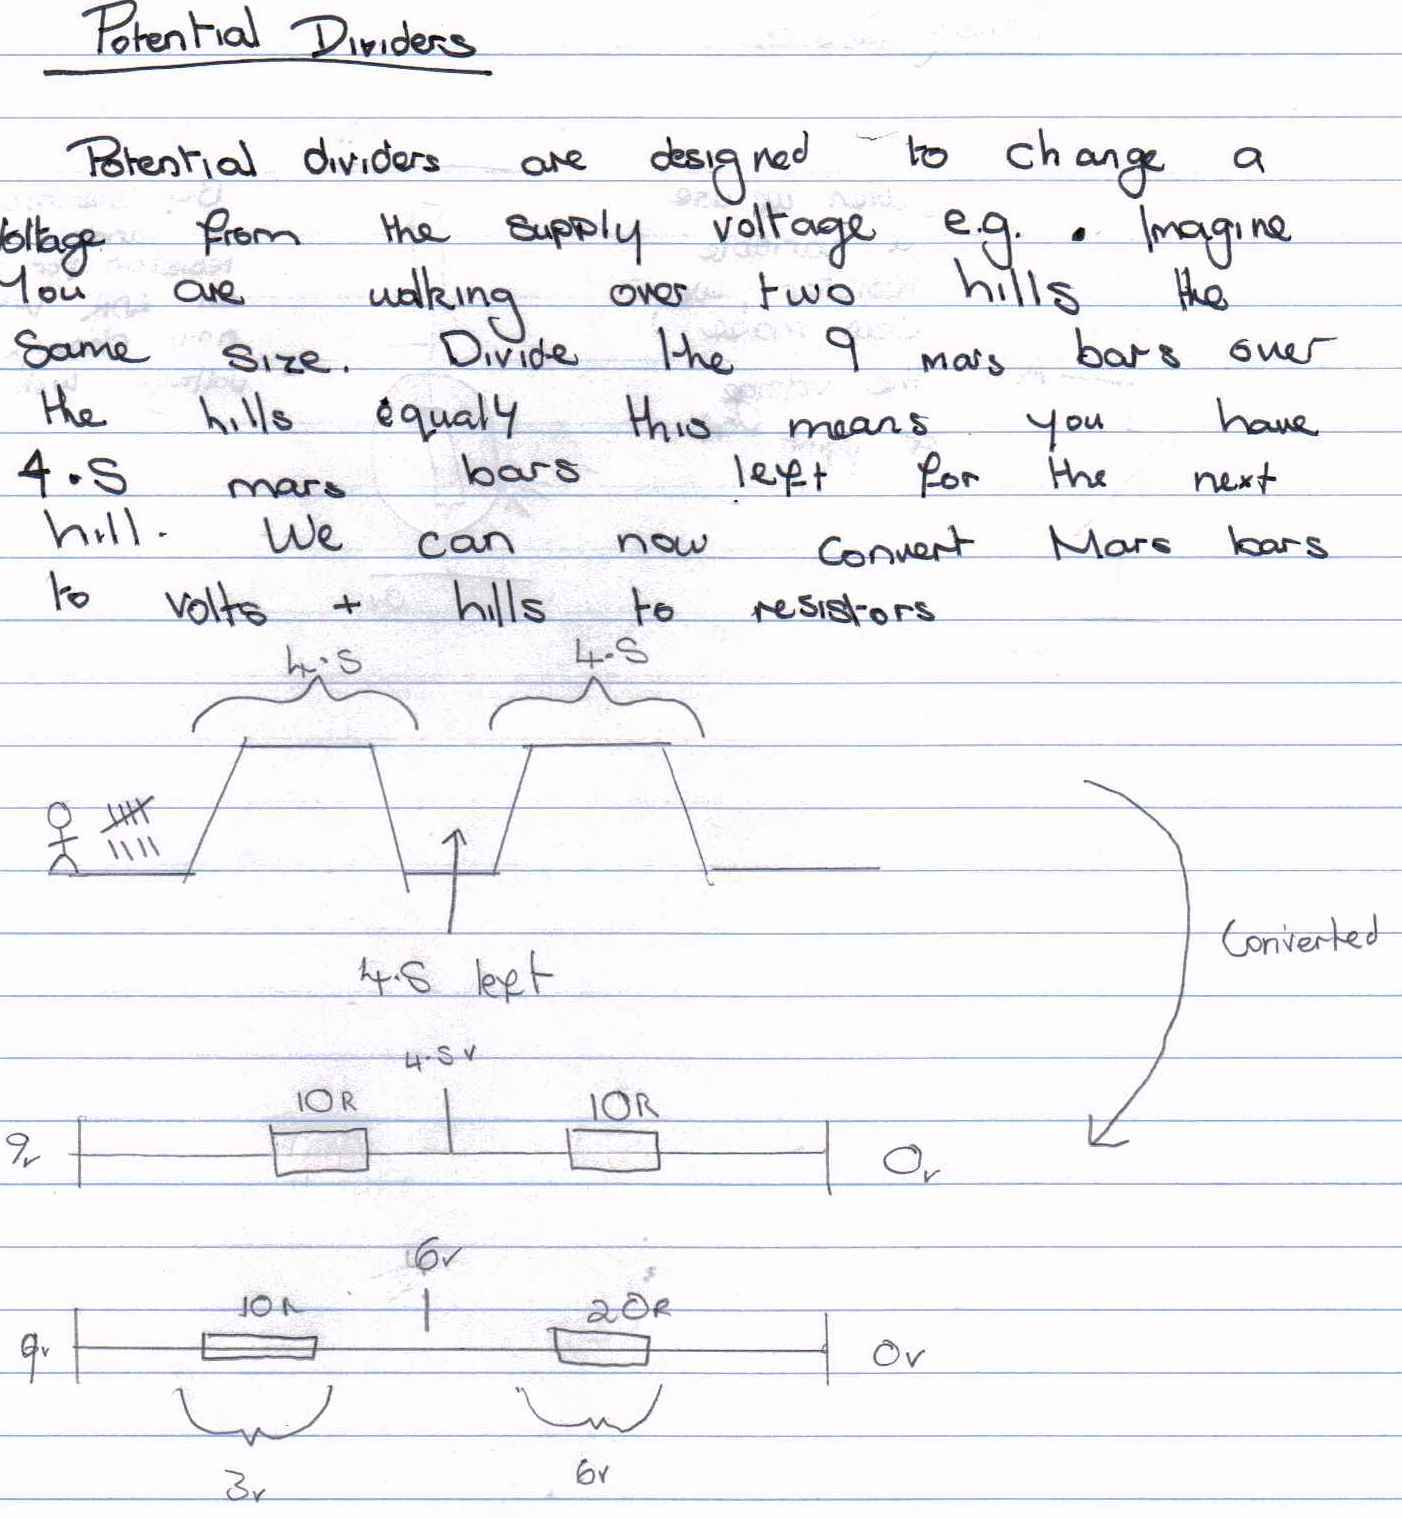 Potential Dividers
Potential dividers are designed to change a
voltage from the supply voltage e.g. . Imagine
You are walking over two hills the
Same size. Divide the 9 mars bars over
the hills equaly this means you have
4.5 mars bars left for the next
hill. We can now convert Mars bars
to volts + hills to resistors
4.5 4.5
4.5 left
Converted
4.5v
10R 10R
9v 0v
6v
10R 20R
9v 0v
3v 6v